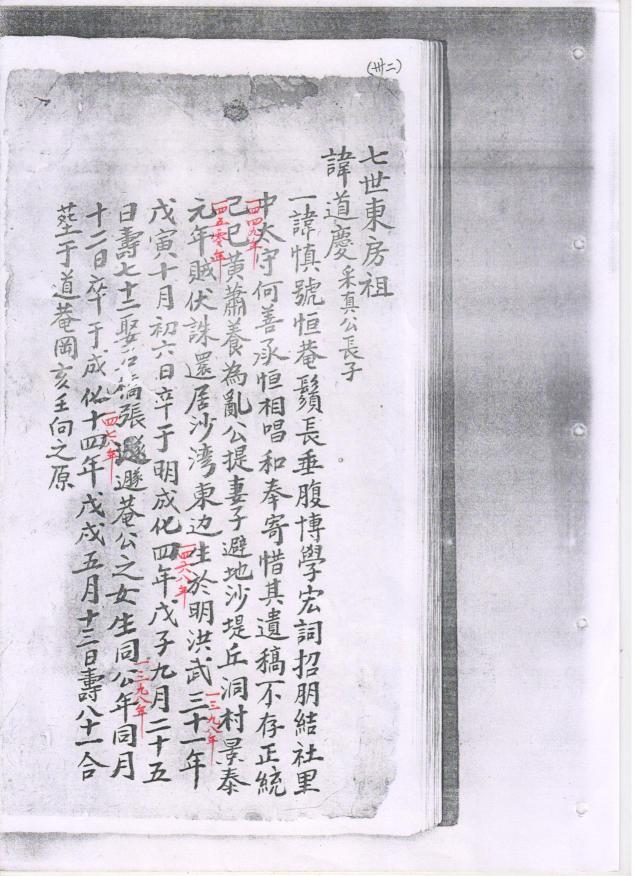 (卅二)
七世東房祖
諱道慶 采真公長子
一諱慎號恒菴鬚長垂腹博學宏詞招朋結社里
中太守何善承恒相唱和奉寄惜其遺稿不存正統
一四四九年
己巳黃蕭養為亂公提妻子避地沙堤丘洞村景泰
一四五零年
元年賊伏誅還居沙湾東边生於明洪武三十一年
一三九八年
戊寅十月初六日卒于明成化四年戊子九月二十五
一四六八年
日壽七十二娶石橋張遯菴公之女生同公年同月
一三九八年
十二日卒于成化十四年戊戌五月十三日壽八十一合
一四七八年
葬于道菴岡亥壬向之原